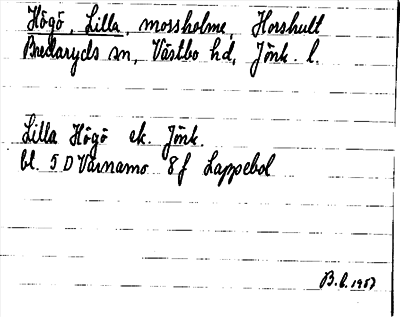 Högö, Lilla, mossholme, Horshult
Bredaryds sn, Västbo hd, Jönk. l.
Lilla Högö ek. Jönk.
bl. 5 D Värnamo 8f Lappebol